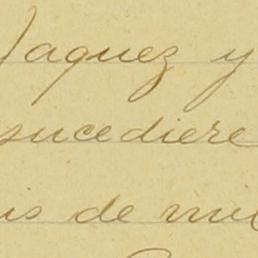 Jaquez y
sucediere
de